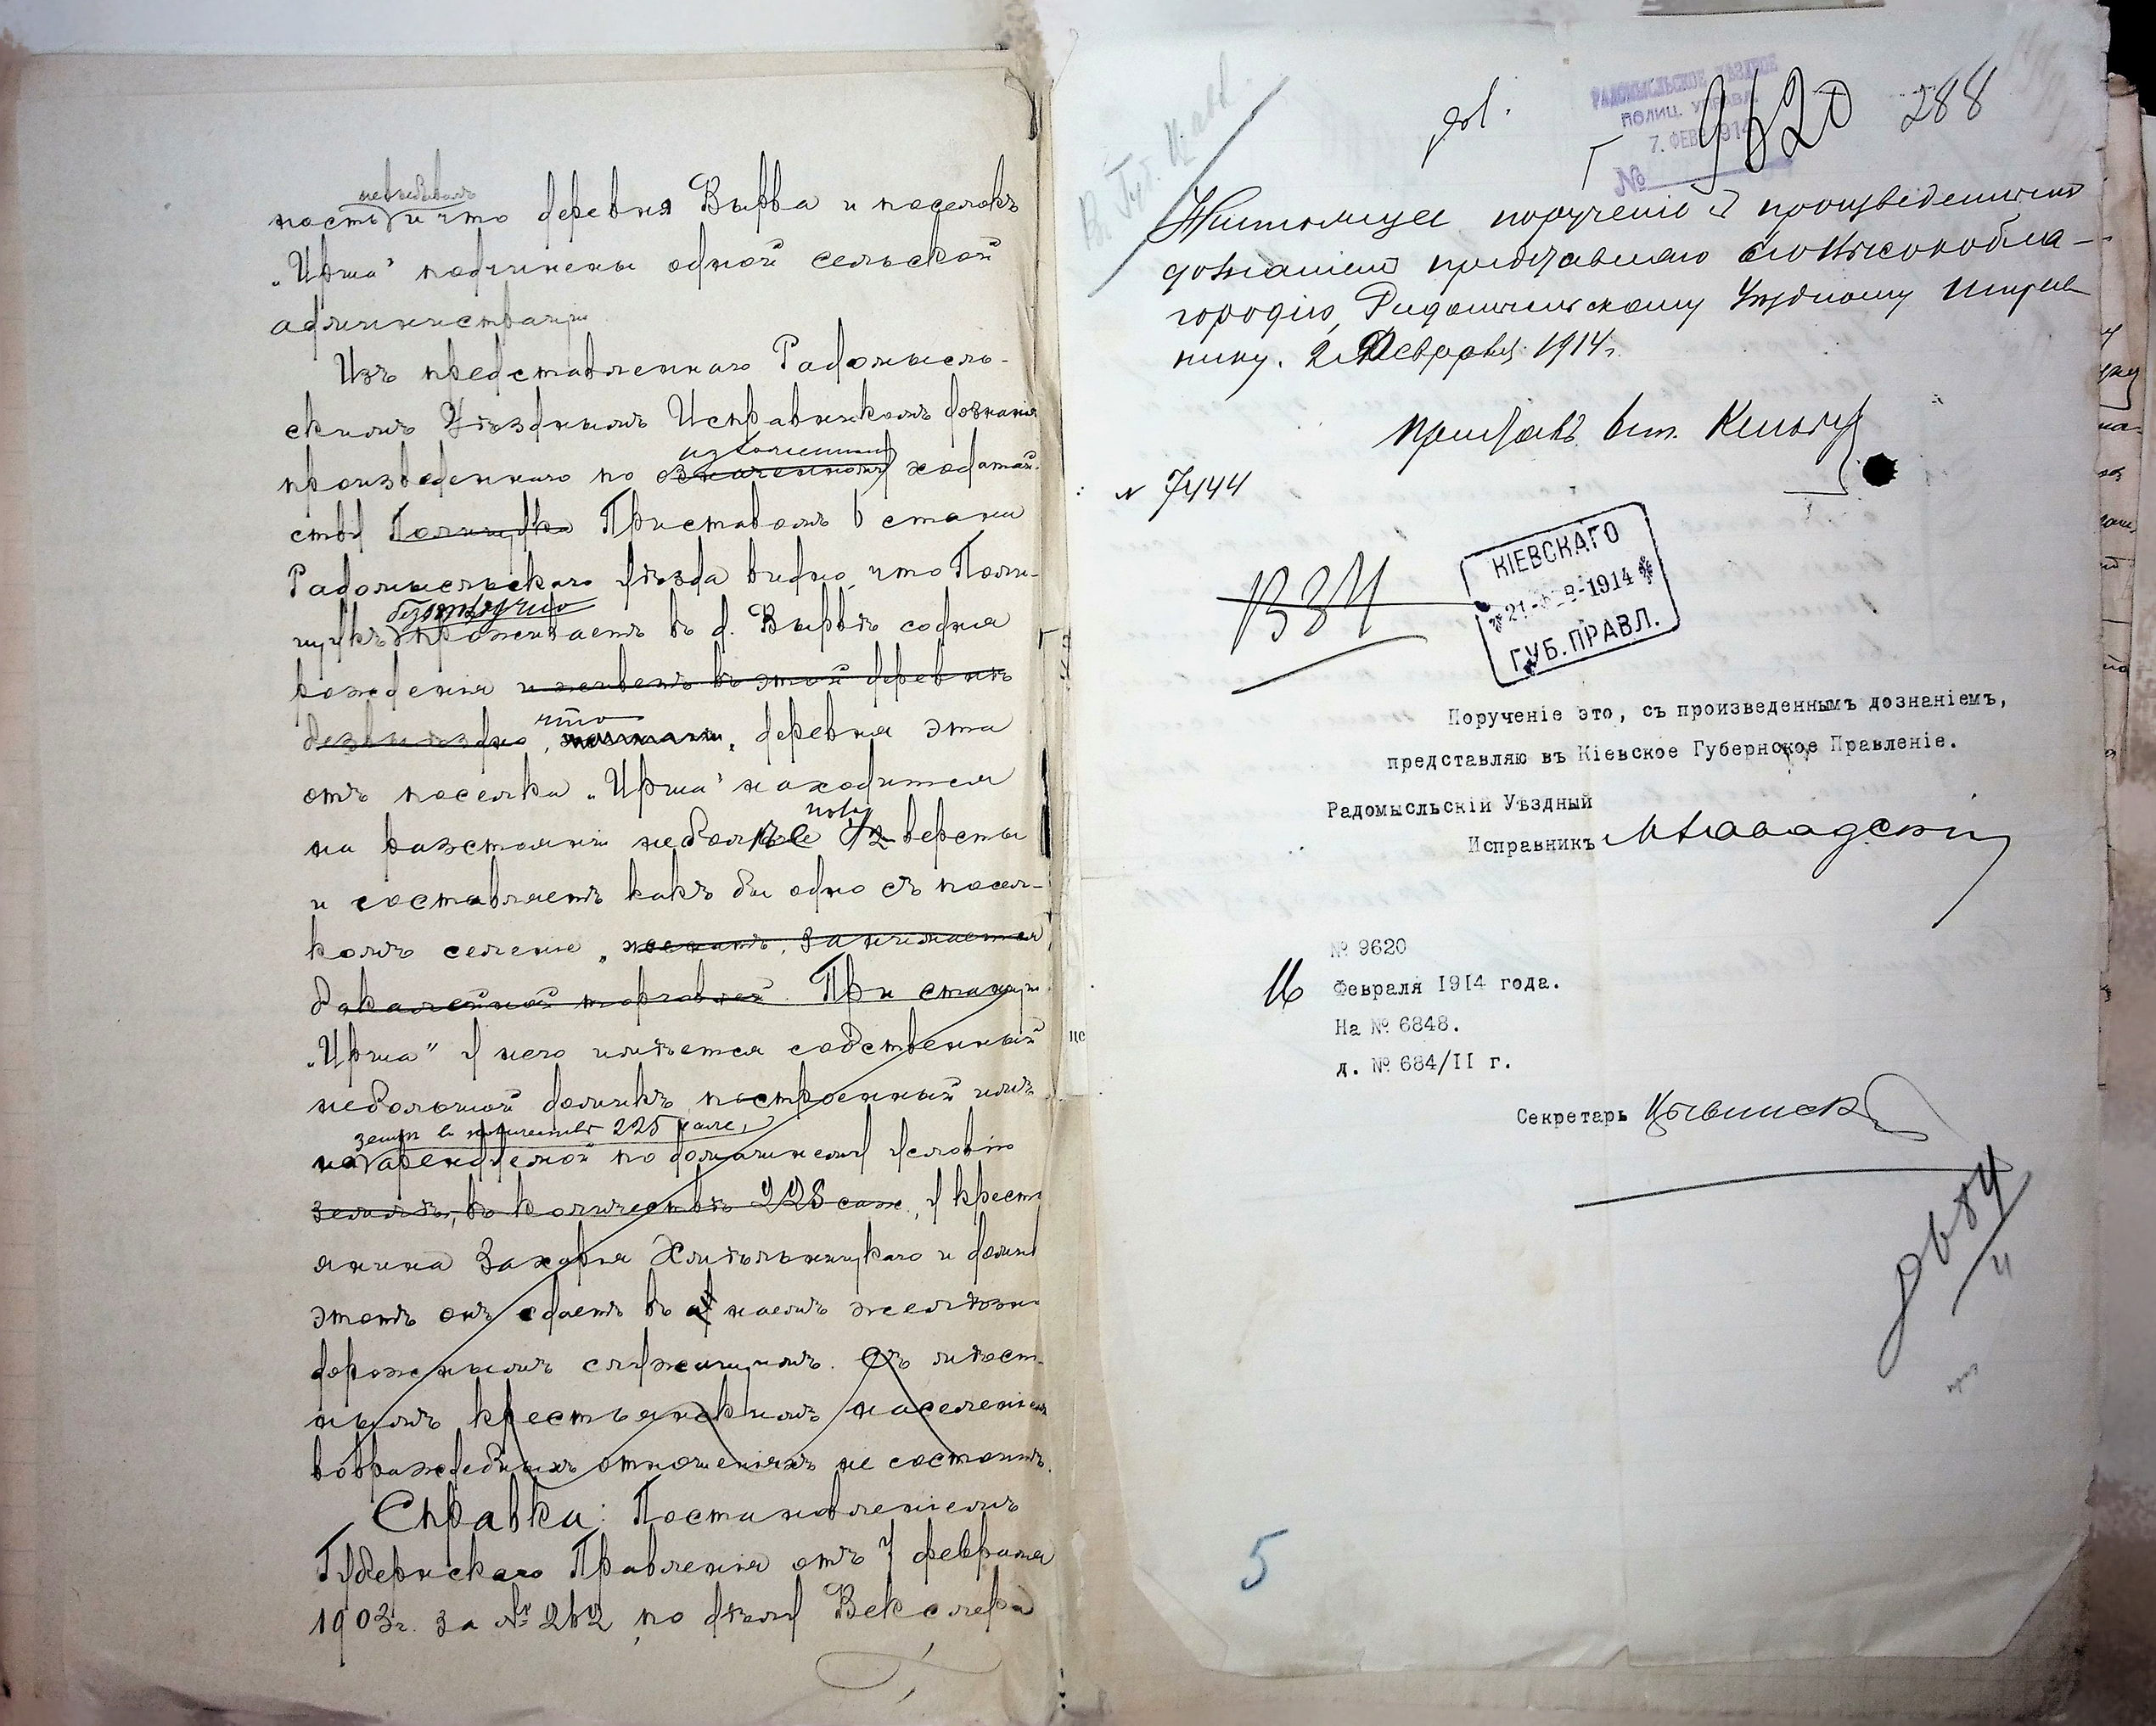 ность и что деревня Вырва и поселокъ
„Ирша" подчинены одной сельской
администрации
Изъ представленнаго Радомысль-
скимъ Уѣзднымъ Исправникомъ дознанія
изложенному
произведеннаго по означенному ходатай-
ству Полищука Приставомъ 6 стана
Радомысльскаго уѣзда видно, что Поли-
безотлучно
щукъ проживаетъ въ д. Вырвѣ со дня
рожденія и живетъ въ этой деревнѣ
что
безвыѣздно, деревня эта
отъ поселка „Ирша" находится
на разстояніи не болѣе 1/2 версты
и составляетъ какъ бы одно съ посел-
комъ селеніе, занимается
бакалейной торговлей. При станціи
„Ирша" у него имѣется собственный
небольшой домикъ, построенный имъ
земли въ количествѣ 225 саж.,
на арендуемой по домашнему условію
землѣ, въ количествѣ 225 саж., у крестъ
янина Захарія Хмѣльницкаго и домъ
этотъ онъ сдаетъ въ наемъ желѣзно
дорожнымъ служащимъ. Съ мѣст-
нымъ крестьянскимъ населеніемъ
во враждебныхъ отношеніяхъ не состоитъ.
Справка: Постановленіемъ
Губернскаго Правленія отъ 7 февраля
1903г. за № 262, по дѣлу Векслера
288
РАДОМЫСЛЬСКОЕ УѢЗДНОЕ
ПОЛИЦ. УПРАВЛ.
7. ФЕВ. 1914
№ 9620
порученіе съ произведеннымъ
дознаніемъ представляю Его Высокобла-
городію, Радомысльскому Уѣздному Исправ
нику. 2 Февраля 1914г.
Приставъ 6 ст.
№ 7444
КІЕВСКАГО
21-ФЕВ-1914
ГУБ. ПРАВЛ.
Порученіе это, съ произведеннымъ дознаніемъ,
представляю въ Кіевское Губернское Правленіе.
Радомысльскій Уѣздный
Исправникъ
№ 9620
16 Февраля 1914 года.
На № 6848.
д. № 684/II г.
Секретарь
5